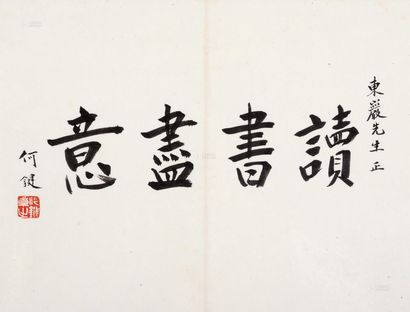 東巖先生正
讀書盡意
何鍵